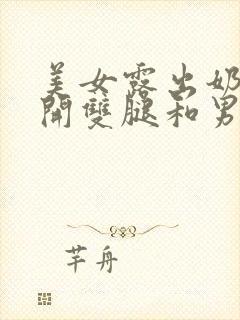 美女露出奶
開雙腿和男
芊舟